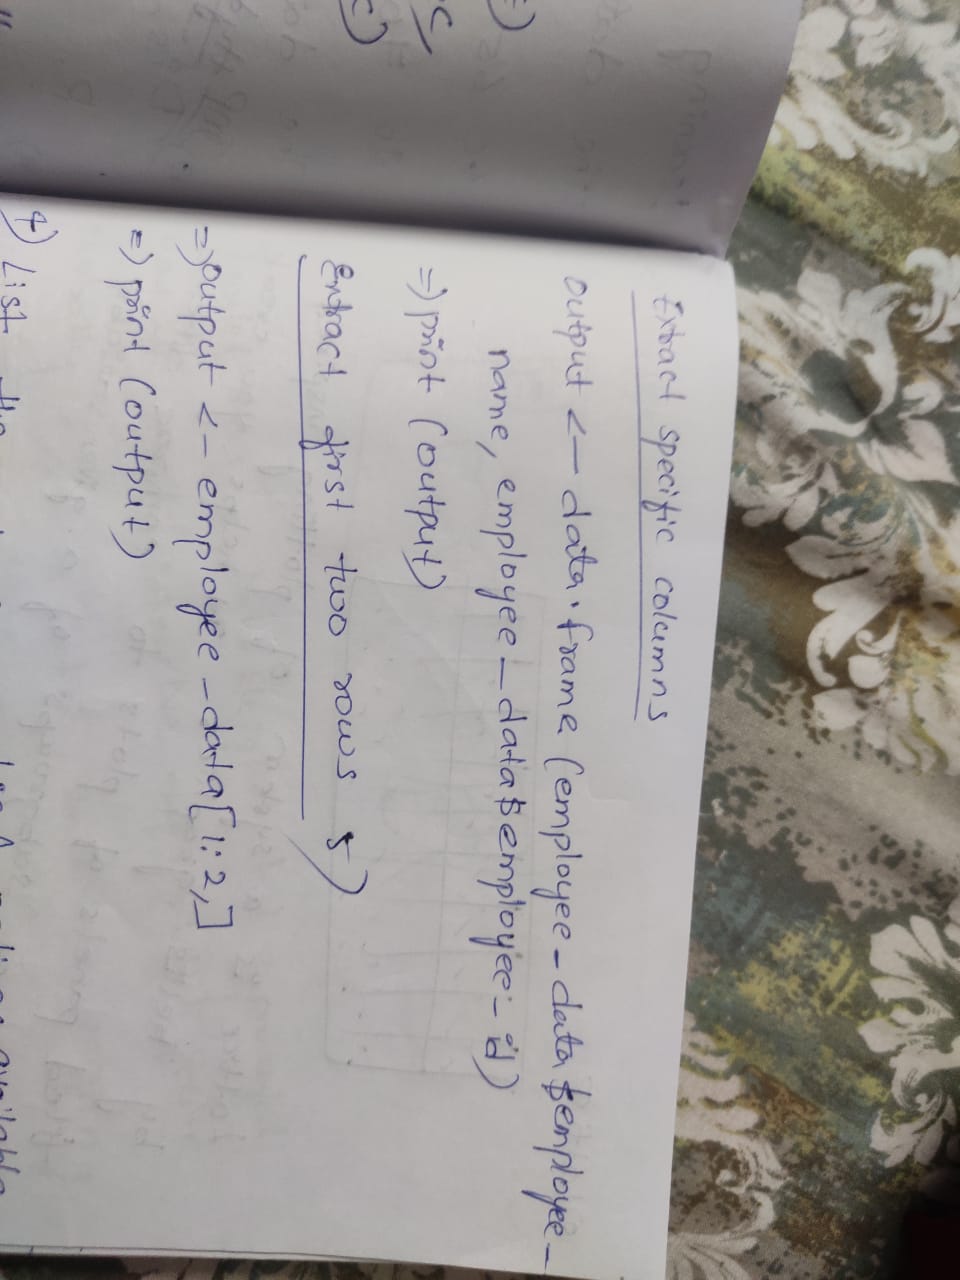 Extract specific columns
output <- data.frame (employee_data$employee_
name, employee_data$employee_id)
=> print (output)
Extract first two rows s)
=> output <- employee_data[1:2,]
=> print (output)
List the
available